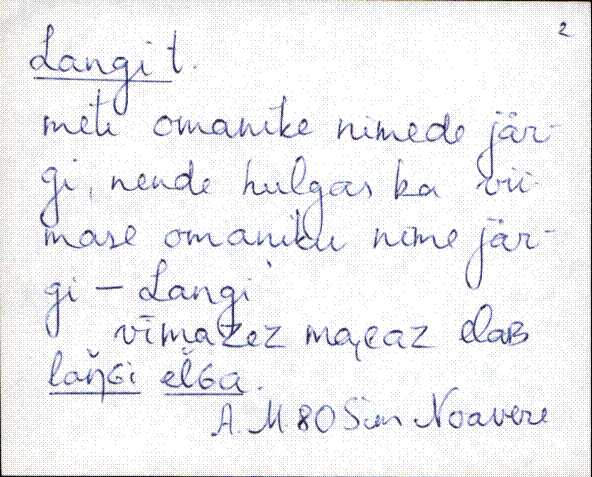 2
Langi t.
mitme omanike nimede jär-
gi, nende hulgas ka vii-
mase omaniku nime jär-
gi – Langi
vīmazez majaz elaʙ
laŋ̆Gi el̆Ga.
A. M 80 Sim Noavere